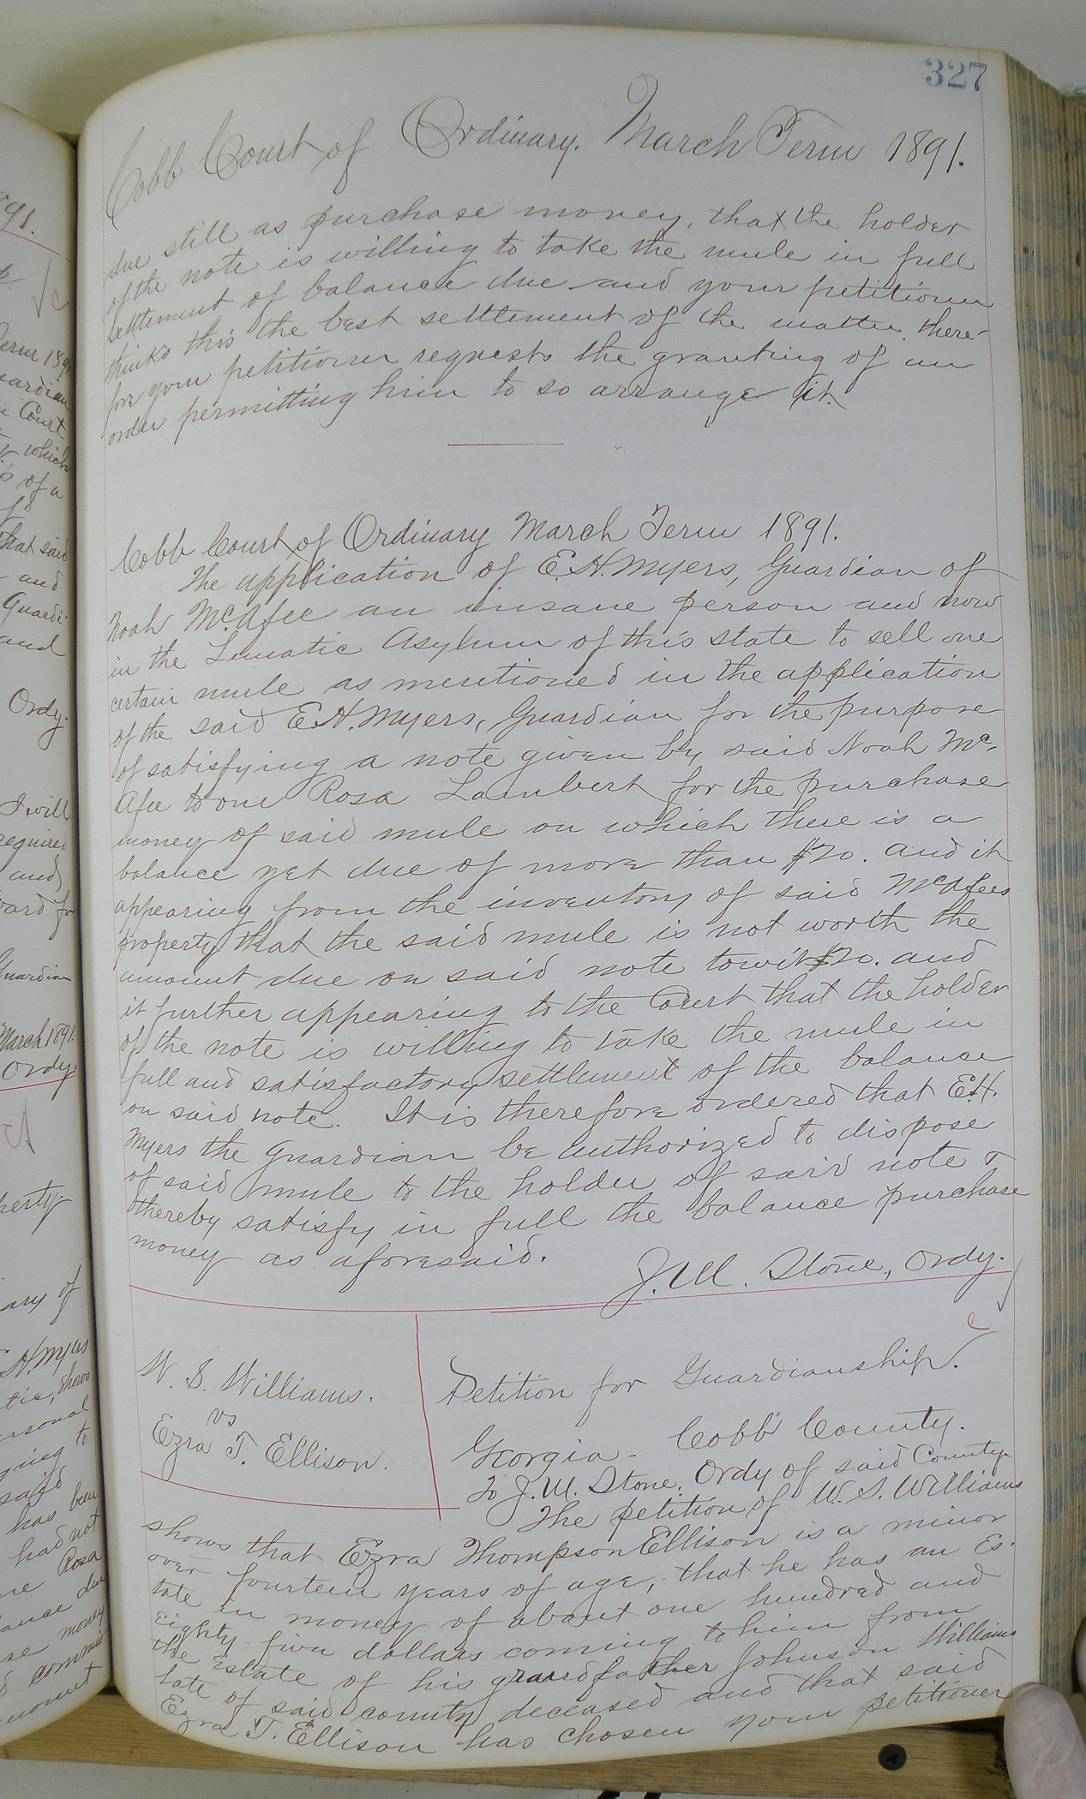 327
Cobb Court of Ordinary. March Term 1891.
due still as purchase money, that the holder
of the note is willing to take the mule in full
settlement of balance due and your petitioner
thinks this the best settlement of the matter. there-
fore your petitioner requests the granting of an
order permitting him to so arrange it.
Cobb Court of Ordinary March Term 1891.
The application of E.H. Myers, Guardian of
Noah McAfee an insane person and now
in the Lunatic Asylum of this state to sell one
certain mule as mentioned in the application
of the said E.H. Myers, Guardian for the purpose
of satisfying a note given by said Noah Mc-
Afee to one Rosa Lambert for the purchase
money of said mule on which there is a
balance yet due of more than $70. and it
appearing from the inventory of said McAfees
property that the said mule is not worth the
amount due on said note towit $70. and
it further appearing to the Court that the holder
of the note is willing to take the mule in
full and satisfactory settlement of the balance
on said note. It is therefore ordered that E.H.
Myers the guardian be authorized to dispose
of said mule to the holder of said note &
thereby satisfy in full the balance purchase
money as aforesaid.
J.M. Stone, Ordy.
W. S. Williams.
vs
Ezra T. Ellison.
Petition for Guardianship.
Georgia - Cobb County.
To J.M. Stone, Ordy of said County.
The petition of W. S. Williams
shows that Ezra Thompson Ellison is a minor
over fourteen years of age, that he has an Es-
tate in money of about one hundred and
Eighty five dollars coming to him from
the Estate of his grandfather Johnson Williams
late of said county deceased and that said
Ezra T. Ellison has chosen your petitioner